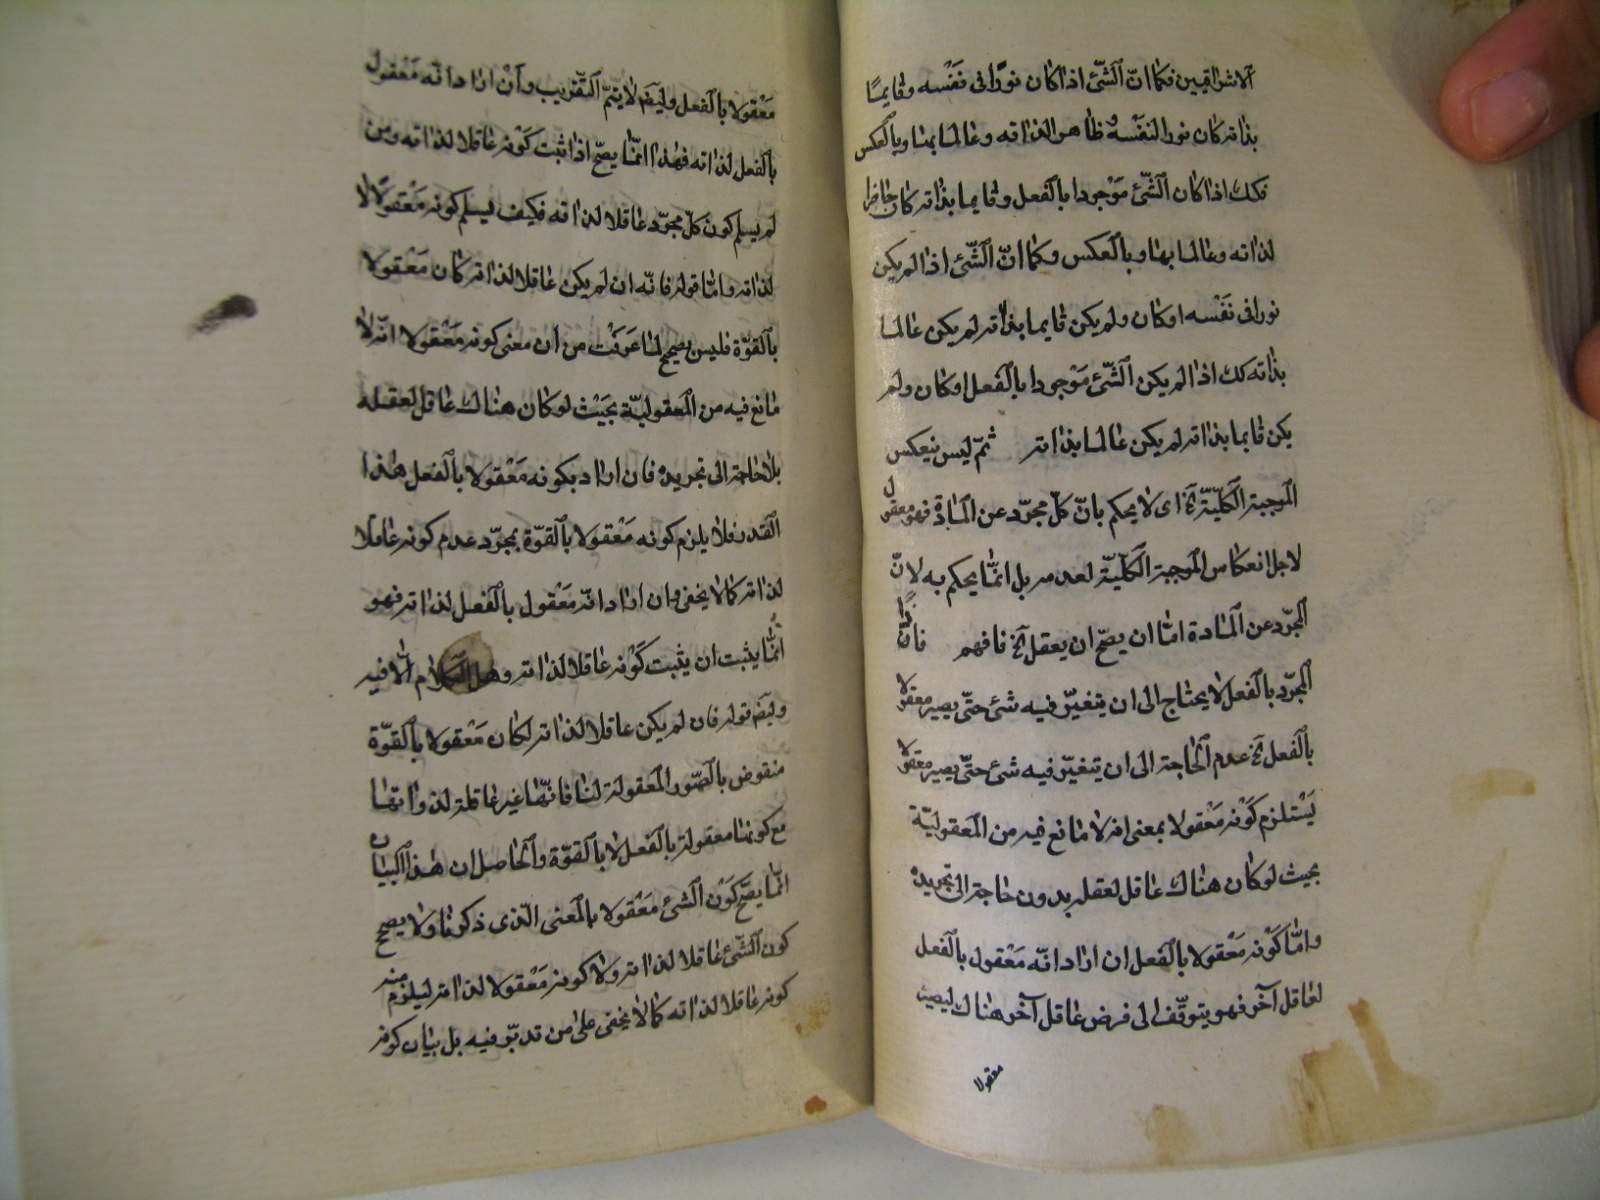 الاشراقيين فكما انّ الشّئ اذا كان نورا فى نفسه وقايمًا
بذاته كان نورا لنفسه ظاهرا لذاته وعالما بها وبالعكس
فكك اذا كان الشّئ موجودا بالفعل وقايما بذاته كان حاضرا
لذاته وعالما بها وبالعكس وكما انّ الشّئ اذا لم يكن
نورا فى نفسه او كان ولم يكن قايما بذاته لم يكن عالما
بذاته كك اذا لم يكن الشّئ موجودا بالفعل او كان ولم
يكن قايما بذاته لم يكن عالما بذاته ثمّ ليس ينعكس
الموجبة الكليّة آخ اى لا يحكم بانّ كلّ مجرّد عن المادة فهو معقول
لاجل انعكاس الموجبة الكليّة لعدمه بل انمّا يحكم به لانّ
المجرّد عن المادة امّا ان يصحّ ان يعقل آخ فافهم فانّ
المجرّد بالفعل لا يحتاج الى ان يتغيّر فيه شئ حتّى يصير معقولا
بالفعل آخ عدم الحاجة الى ان يتغيّر فيه شئ حتّى يصير معقولا
يستلزم كونه معقولا بمعنى انه لا مانع فيه من المعقوليّة
بحيث لو كان هناك عاقل لعقله بدون حاجة الى تجريده
وامّا كونه معقولا بالفعل ان اراد انّه معقول بالفعل
لعاقل آخر فهو يتوقّف الى فرض عاقل آخر هناك ليصير
معقولا
معقولا بالفعل وليضم لا يتمّ التقريب وان اراد انّه معقول
بالفعل لذاته فهذا انمّا يصحّ اذا ثبت كونه عاقلا لذاته ومن
لم يسلم كون كلّ مجرّد عاقلا لذاته فكيف يسلم كونه معقولا
لذاته وامّا قوله فانّه ان لم يكن عاقلا لذاته كان معقولا
بالقوّة فليس بصحيح لما عرفت من ان معنى كونه معقولا انّه لا
مانع فيه من المعقوليّة بحيث لو كان هناك عاقل لعقله
بلا حاجة الى تجريده فان اراد بكونه معقولا بالفعل هذا
القدر فلا يلزم كونه معقولا بالقوّة بمجرّد عدم كونه عاقلا
لذاته كما لا يخفى وان اراد انّه معقول بالفعل لذاته فهو
انمّا يثبت ان يثبت كونه عاقلا لذاته وهل الكلام الا فيه
وليضم قوله فان لم يكن عاقلا لذاته لكان معقولا بالقوّة
منقوض بالصّور المعقولة لنا فانّها غير عاقلة لذواتها
مع كونها معقولة بالفعل لا بالقوّة والحاصل ان هذا البيان
انمّا يصحّ كون الشئ معقولا بالمعنى الذى ذكرنا ولا يصحح
كون الشّئ عاقلا لذاته ولا كونه معقولا لذاته ليلزم منه
كونه عاقلا لذاته كما لا يخفى على من تدبّر فيه بل بيان كونه